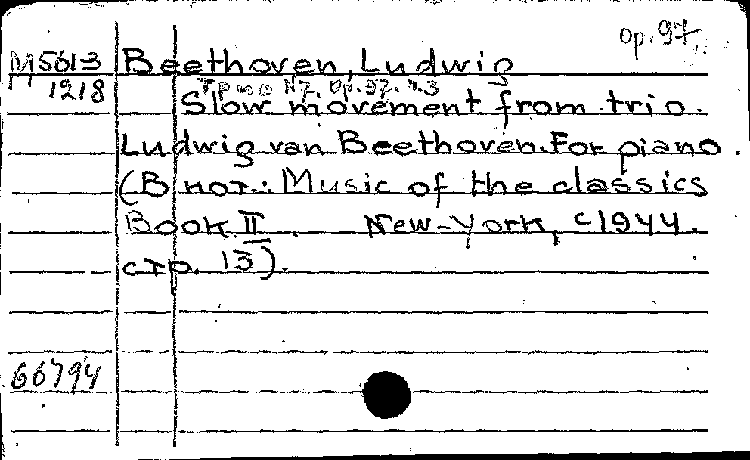 Op. 97.
M5613 Beethoven, Ludwig
1218 Op. 97. ч.3
Slow movement from trio.
Ludwig van Beethoven. For piano.
(В нот.: Music of the classics
Book II. New-York, c1944.
стр. 13).
66794